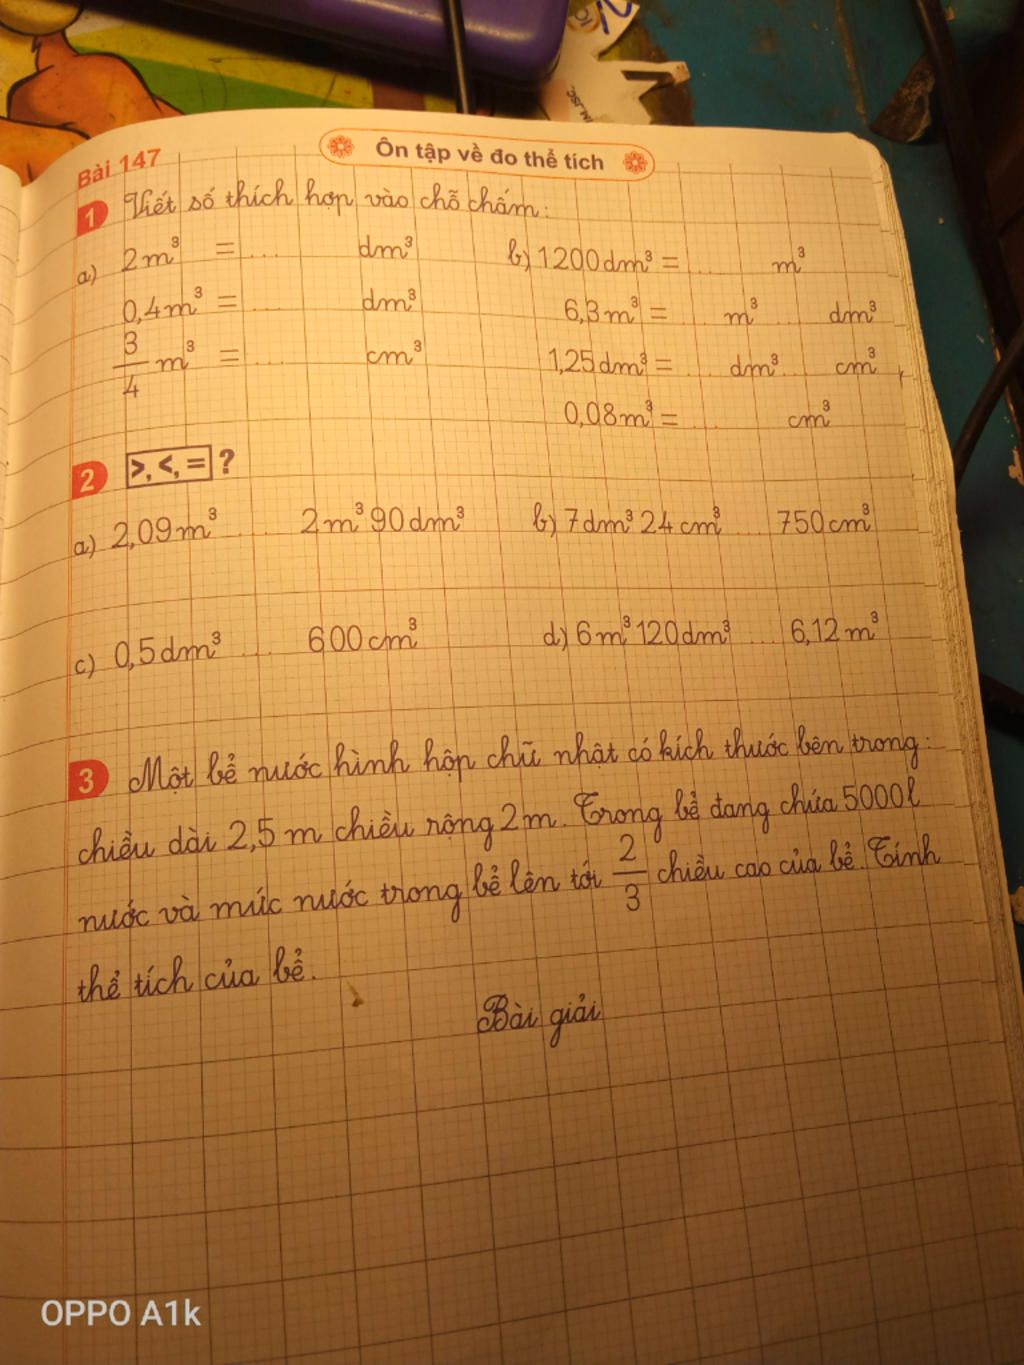 Bài 147
Ôn tập về đo thể tích
1 Viết số thích hợp vào chỗ chấm:
a) 2m³ = ... dm³ b) 1200dm³ = ... m³
0,4m³ = ... dm³ 6,3m³ = ... m³ ... dm³
3/4 m³ = ... cm³ 1,25dm³ = ... dm³ ... cm³
0,08m³ = ... cm³
2 >, <, = ?
a) 2,09m³ ... 2m³ 90dm³ b) 7dm³ 24cm³ ... 750cm³
c) 0,5dm³ ... 600cm³ d) 6m³ 120dm³ ... 6,12m³
3 Một bể nước hình hộp chữ nhật có kích thước bên trong:
chiều dài 2,5m chiều rộng 2m. Trong bể đang chứa 5000l
nước và mức nước trong bể lên tới 2/3 chiều cao của bể. Tính
thể tích của bể.
Bài giải
OPPO A1k